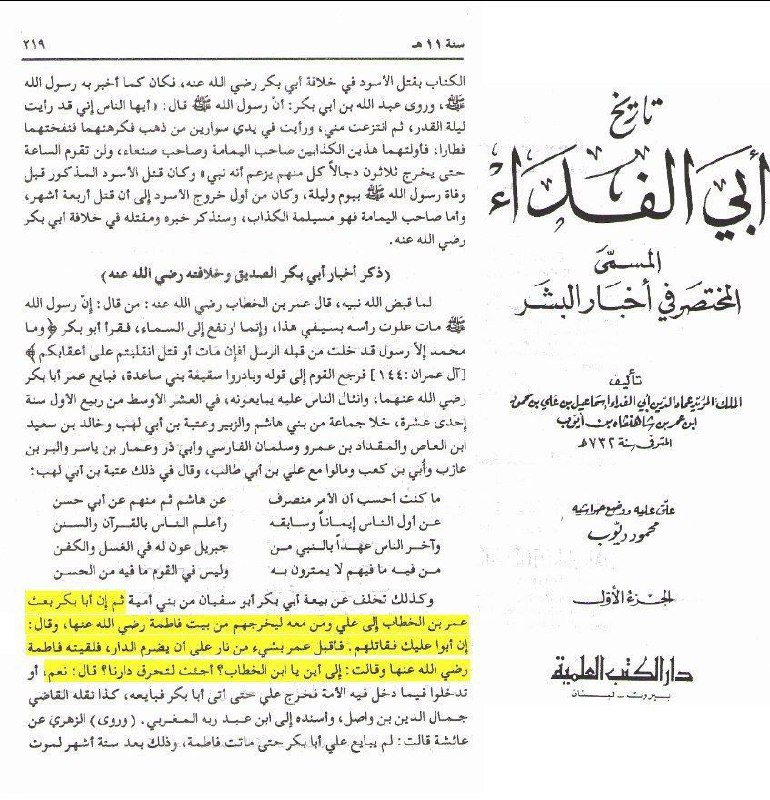 سنة ١١ هـ ٢١٩
الكتاب بقتل الأسود في خلافة أبي بكر رضي الله عنه، فكان كما أخبر به رسول الله
ﷺ، وروى عبد الله بن أبي بكر: أن رسول الله ﷺ قال: «أيها الناس إني قد رأيت
ليلة القدر، ثم انتزعت مني، ورأيت في يدي سوارين من ذهب فكرهتهما فنفختهما
فطارا: فأولتهما هذين الكذابين صاحب اليمامة وصاحب صنعاء، ولن تقوم الساعة
حتى يخرج ثلاثون دجالاً كل منهم يزعم أنه نبي» وكان قتل الأسود المذكور قبل
وفاة رسول الله ﷺ بيوم وليلة، وكان من أول خروج الأسود إلى أن قتل أربعة أشهر،
وأما صاحب اليمامة فهو مسيلمة الكذاب، وسنذكر خبره ومقتله في خلافة أبي بكر
رضي الله عنه.
(ذكر أخبار أبي بكر الصديق وخلافته رضي الله عنه)
لما قبض الله نبيه، قال عمر بن الخطاب رضي الله عنه: من قال: إنّ رسول الله
ﷺ مات علوت رأسه بسيفي هذا، وإنما ارتفع إلى السماء، فقرأ أبو بكر ﴿وما
محمد إلاّ رسول قد خلت من قبله الرسل أفإن مات أو قتل انقلبتم على أعقابكم﴾
[آل عمران: ١٤٤] فرجع القوم إلى قوله وبادروا سقيفة بني ساعدة، فبايع عمر أبا بكر
رضي الله عنهما، وانثال الناس عليه يبايعونه، في العشر الأوسط من ربيع الأول سنة
إحدى عشرة، خلا جماعة من بني هاشم والزبير وعتبة بن أبي لهب وخالد بن سعيد
ابن العاص والمقداد بن عمرو وسلمان الفارسي وأبي ذر وعمار بن ياسر والبر بن
عازب وأبي بن كعب ومالوا مع علي بن أبي طالب، وقال في ذلك عتبة بن أبي لهب:
ما كنت أحسب أن الأمر منصرف عن هاشم ثم منهم عن أبي حسن
عن أول الناس إيماناً وسابقه وأعلم الناس بالقرآن والسنن
وآخر الناس عهداً بالنبي من جبريل عون له في الغسل والكفن
من فيه ما فيهم لا يمترون به وليس في القوم ما فيه من الحسن
وكذلك تخلف عن بيعة أبي بكر أبو سفيان من بني أمية ثم إن أبا بكر بعث
عمر بن الخطاب إلى علي ومن معه ليخرجهم من بيت فاطمة رضي الله عنها، وقال:
إن أبوا عليك فقاتلهم. فأقبل عمر بشيء من نار على أن يضرم الدار، فلقيته فاطمة
رضي الله عنها وقالت: إلى أين يا ابن الخطاب؟ أجئت لتحرق دارنا؟ قال: نعم، أو
تدخلوا فيما دخل فيه الأمة فخرج علي حتى أتى أبا بكر فبايعه، كذا نقله القاضي
جمال الدين بن واصل، وأسنده إلى ابن عبد ربه المغربي. (وروى) الزهري عن
عائشة قالت: لم يبايع علي أبا بكر حتى ماتت فاطمة، وذلك بعد ستة أشهر لموت
تاريخ
أبي الفداء
المسمى
المختصر في أخبار البشر
تأليف
الملك المؤيد عماد الدين أبي الفداء إسماعيل بن علي بن محمود
ابن عمر بن شاهنشاه بن أيوب
المتوفى سنة ٧٣٢ هـ
علق عليه ووضع حواشيه
محمود ديوب
الجزء الأول
دار الكتب العلمية
بيروت - لبنان